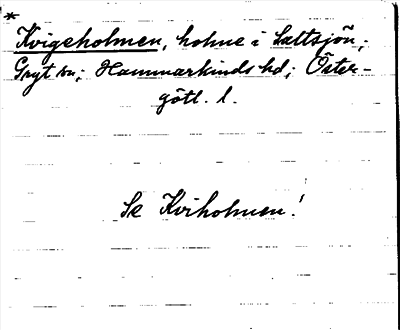 *
Kvigeholmen, holme i Lettsjön;
Gryt sn; Hammarkinds hd; Öster-
götl. l.
Se Kviholmen!